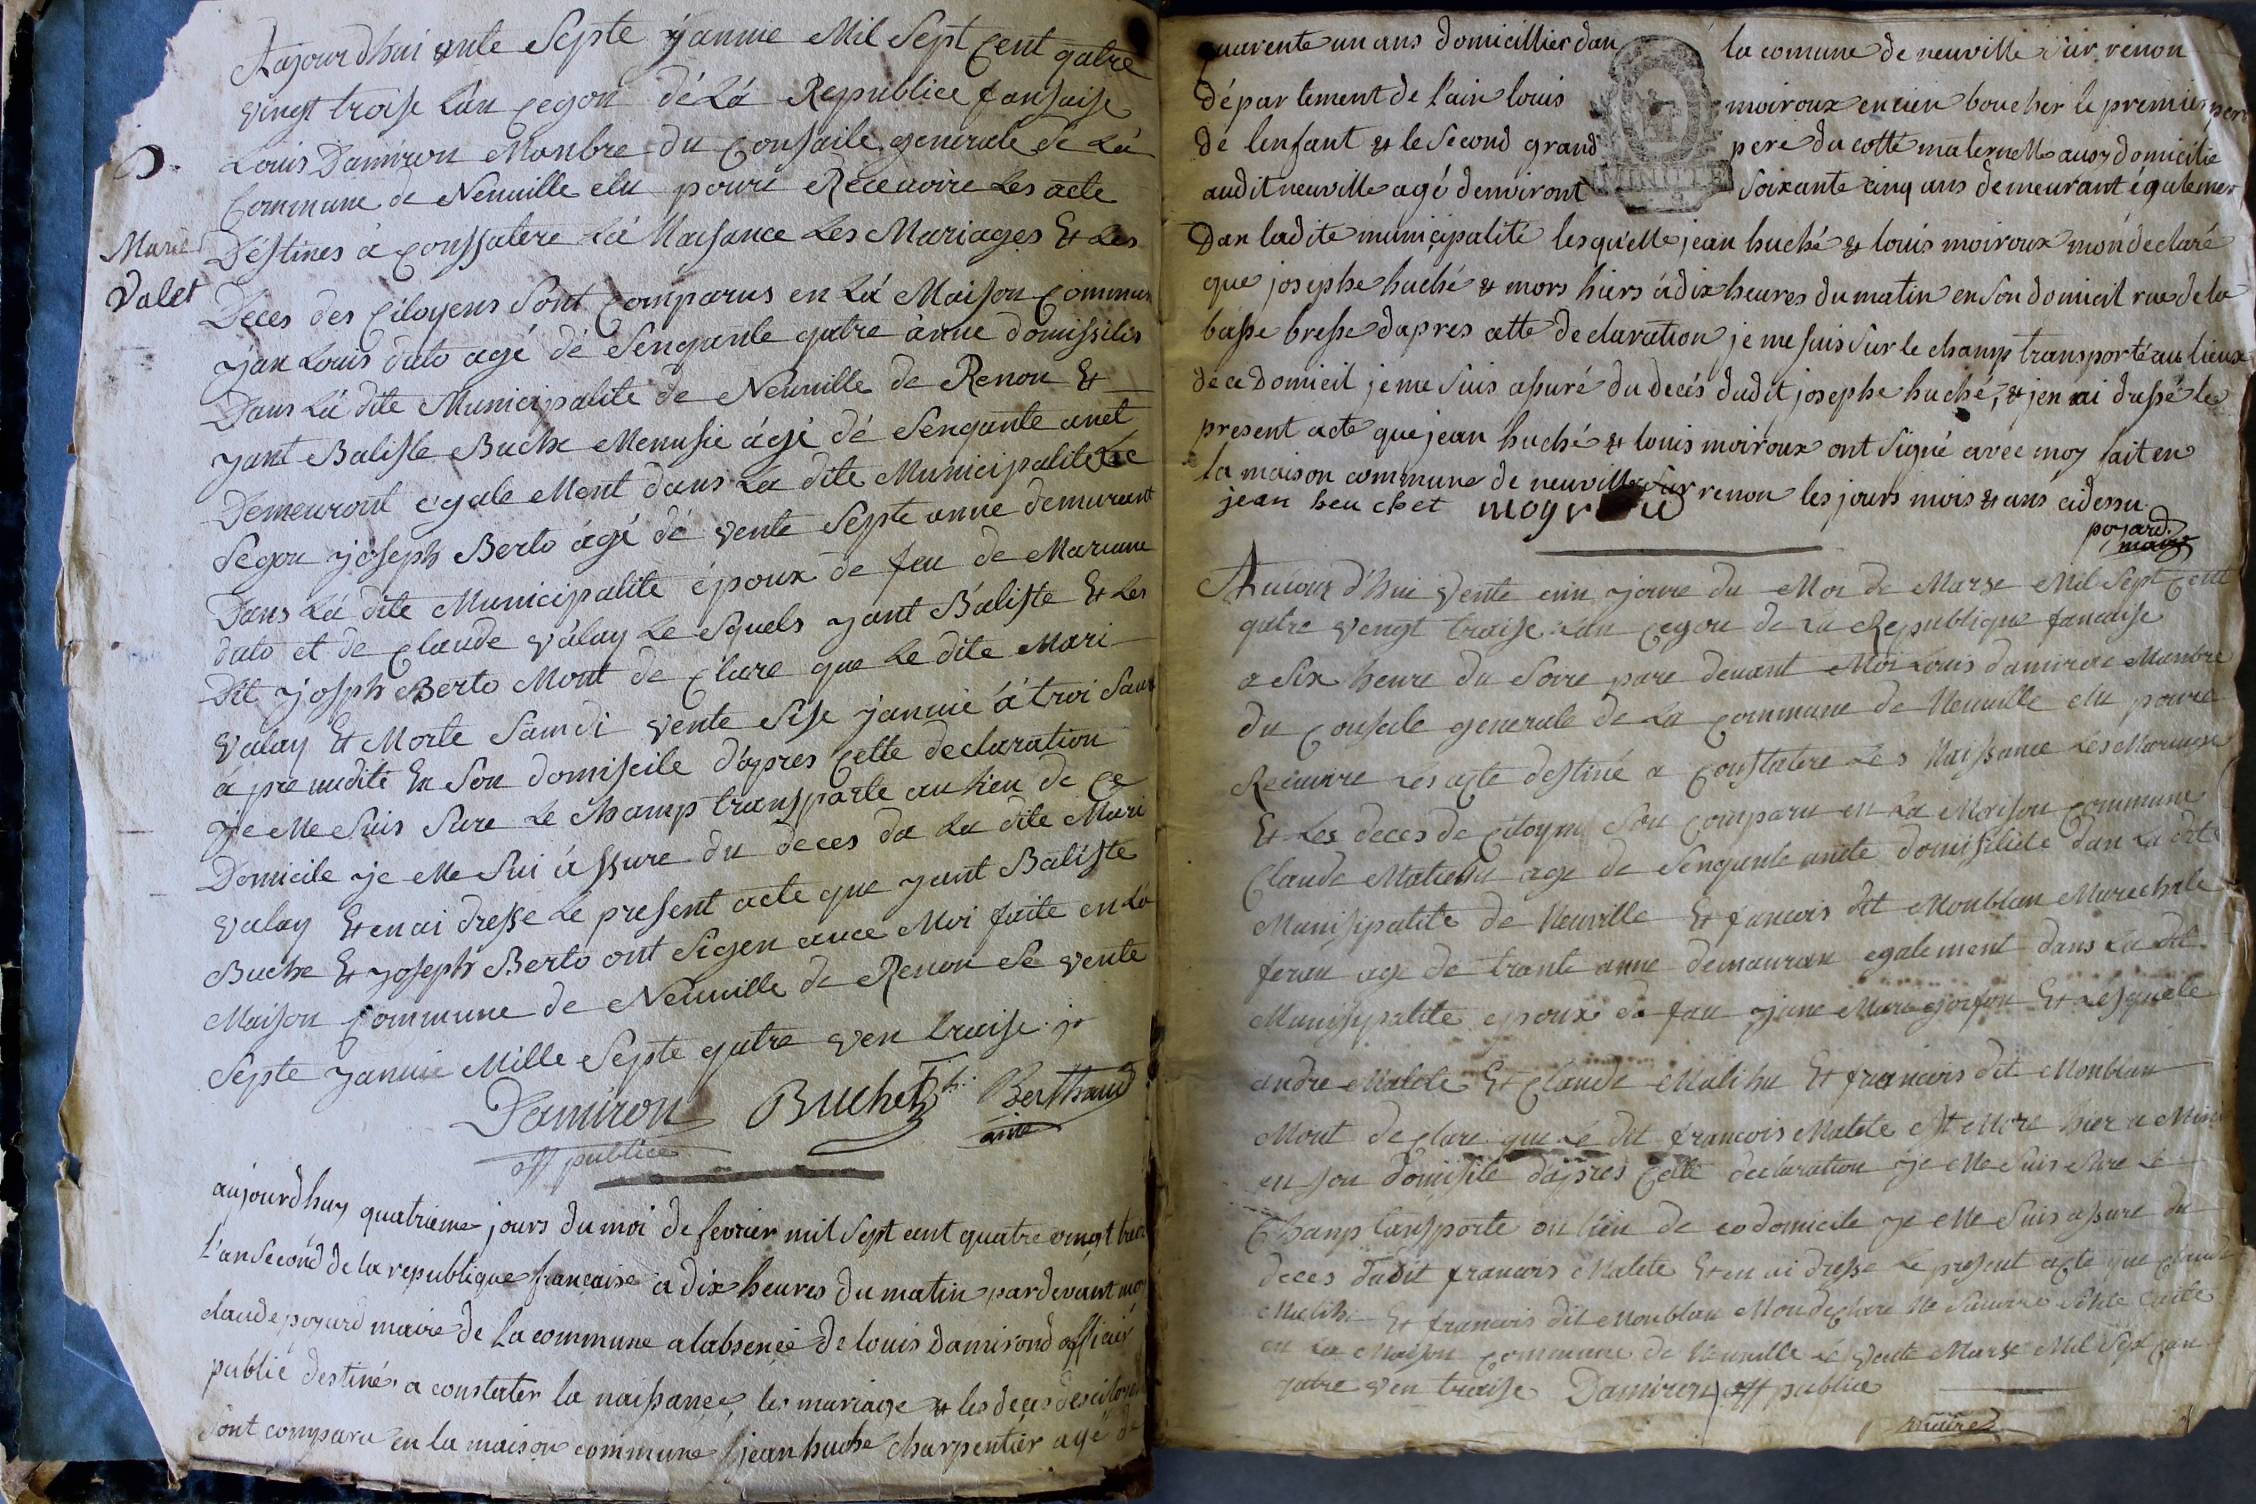 Aujourdhui vente Septe janvie Mil Sept Cent qatre
vingt traise Lan cegon dé Lá Republice fansaise
Louis Damiron Manbre du Consaile generale de La
D.
Commune de Neuville elu poure Recevoire Les acte
Marie
Valet
Déstines a conssatere Lá Naisance Les Mariages Et Les
Deces des Citoyens Sont Comparus en Lá Maison Commun
yan Louis dato agé dé Senqante qatre anne domissilis
Dans Lá dite Municipalite de Neuville de Renon Et
yant Batiste Buche Menusie ágé dé Senqante anet
Demeuront égale Ment dans La dite Municipalite Le
Segon joseph Berto ágé dé vente Septe anne demurant
Dans Lá dite Municipalite époux de feu de Mariane
dato et de Claude valay Le Squels yant Batiste Et Les
Dit joseph Berto Mont de Clare que Le dite Mari
valay Et Morte Samdi vente Sise janvié á troi Saur
á pre midite En Son domiseile d'apres Cette declaration
Je Me Suis Sure Le Champ transparte au Lieu de Ce
Domicile je Me Sui ássure du deces da La dite Mari
valay Et en ai dresse Le present acte que yant Batiste
Buche Et joseph Berto ont Sigen avec Moi faite en Lá
Maison Commune de Neuville de Renon Le vente
Septe janvie Mille Septe qatre ven traise
Damiron Buchet Berthaud
off publice ainé
aujourdhuy quatrieme jours du moi de fevrier mil sept cent quatre vingt traize
l'an second de la republique française a dix heures du matin pardevant moy
claude poyard maire de la commune a labsence de louis Damirond officier
public destiné a constater la naissance, les mariage et les deces des citoyens
sont comparu en la maison commune jean huche charpentier agé de
quarente un ans domicillier dan la comune de neuville sur renon
département de l'ain louis moiroux encien boucher le premier pere
de lenfant et le second grand pere du cotté maternelle aussy domicilié
audit neuville agé denviront soixante cinq ans demeurant égalemen
MINUTE
Dan ladite municipalité lesquelle jean huché et louis moiroux mon déclaré
que josephe huché et mors hiers á dix heures du matin en son domicil rue de la
basse bresse dapres cette declaration je me suis sur le champ transporté au lieux
de ce domicil je me suis assuré du decés dudit josephe huché, et jen ai dressé le
present acte que jean huché et louis moiroux ont signé avec moy fait en
la maison commune de neuville sur renon les jours mois et ans cidessu
jean heuchet moyroud
poyard
maire
Aujour d'hui vente euin joure du Moi de Marse Mil Sept Cent
qatre vengt traise Lan Cegon de La Republique fancaise
a Six heure du Soire pare devant Moi Louis damiron Manbre
du Consaile generale de La Commune de Neuville elu poure
Recevoire Les acte destiné a Constatere Les Naissance Les Mariage
Et Les deces de Citoyen Son Comparu en La Maison Commune
Claude Matieu age de Senqante anete domisiliée dan La dite
Munisipalite de Neuville Et fancois dit Monblan Marechale
feran age de trante anne demauran egalement dans La dit
Munisipalite epoux de feu Et Lesquele
andre Malete Et Claude Matihu Et francois dit Monblan
Mont declare que Le dit francois Malete Et More hier a Midi
en son domisile dapres Cette declaration je Me Suis Sure Le
Champ tansporte ou Lieu de Ce domicile je Me Suis assure du
deces dudit francois Malete Et en ai dresse Le present acte que Claude
Matihu Et francois dit Monblan Mon declare Ne Savoire
en La Maison Commune de Neuville Le vente Marse Mil Sept Can
qatre ven traise Damiron off publice
maire